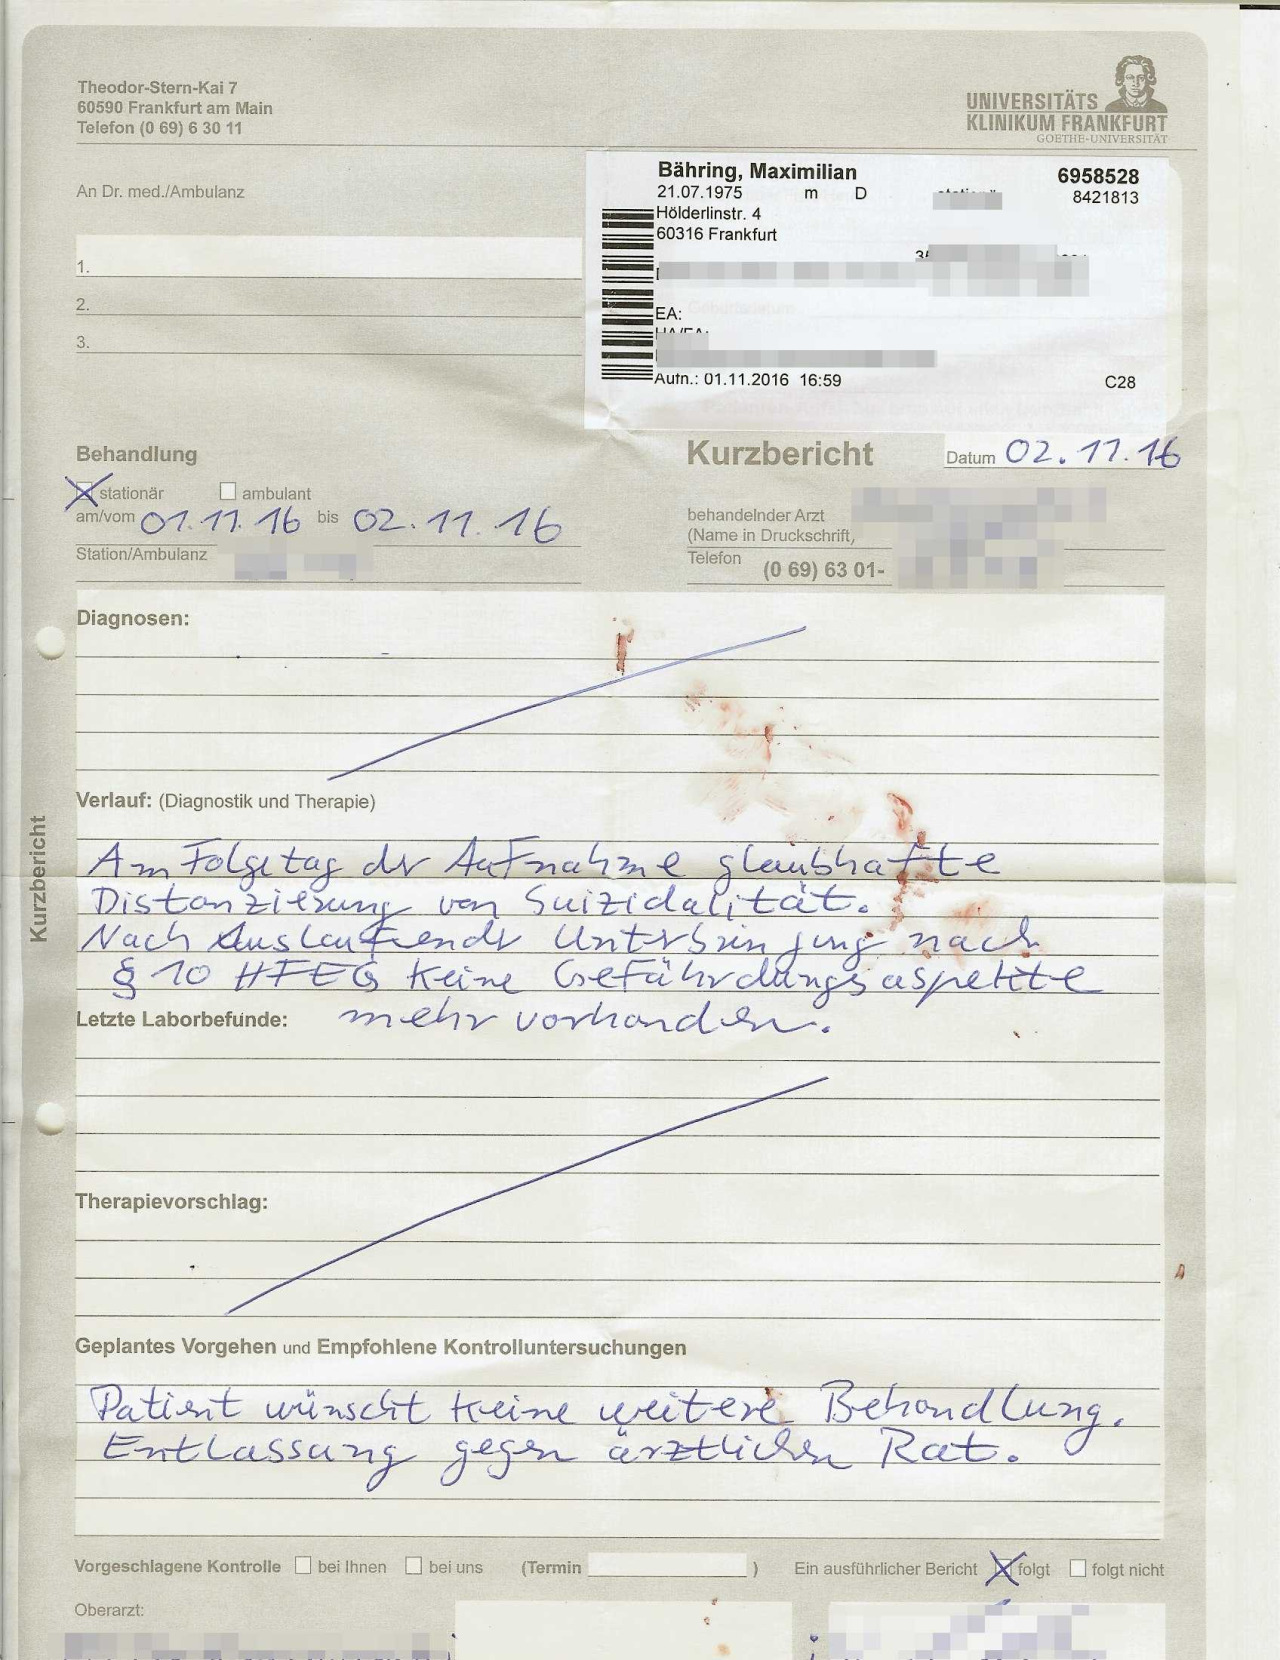 Theodor-Stern-Kai 7
60590 Frankfurt am Main
Telefon (0 69) 6 30 11
UNIVERSITÄTS
KLINIKUM FRANKFURT
GOETHE-UNIVERSITÄT
An Dr. med./Ambulanz
1.
2.
3.
Bähring, Maximilian 6958528
21.07.1975 m D 8421813
Hölderlinstr. 4
60316 Frankfurt
EA:
Aufn.: 01.11.2016 16:59 C28
Behandlung
stationär ambulant
am/vom 01.11.16 bis 02.11.16
Station/Ambulanz
Kurzbericht Datum 02.11.16
behandelnder Arzt
(Name in Druckschrift,
Telefon (0 69) 63 01-
Kurzbericht
Diagnosen:
Verlauf: (Diagnostik und Therapie)
Am Folgetag der Aufnahme glaubhafte
Distanzierung von Suizidalität.
Nach Auslaufender Unterbringung nach
§ 10 HFEG keine Gefährdungsaspekte
mehr vorhanden.
Letzte Laborbefunde:
Therapievorschlag:
Geplantes Vorgehen und Empfohlene Kontrolluntersuchungen
Patient wünscht keine weitere Behandlung.
Entlassung gegen ärztlichen Rat.
Vorgeschlagene Kontrolle bei Ihnen bei uns (Termin ) Ein ausführlicher Bericht folgt folgt nicht
Oberarzt: